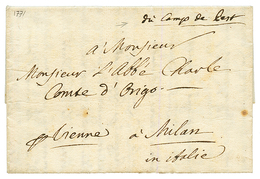 1771
du Camp de Pest
à Monsieur
Monsieur L'Abbé Charle
Comte d'Origo
p Vienne à Milan
in italie